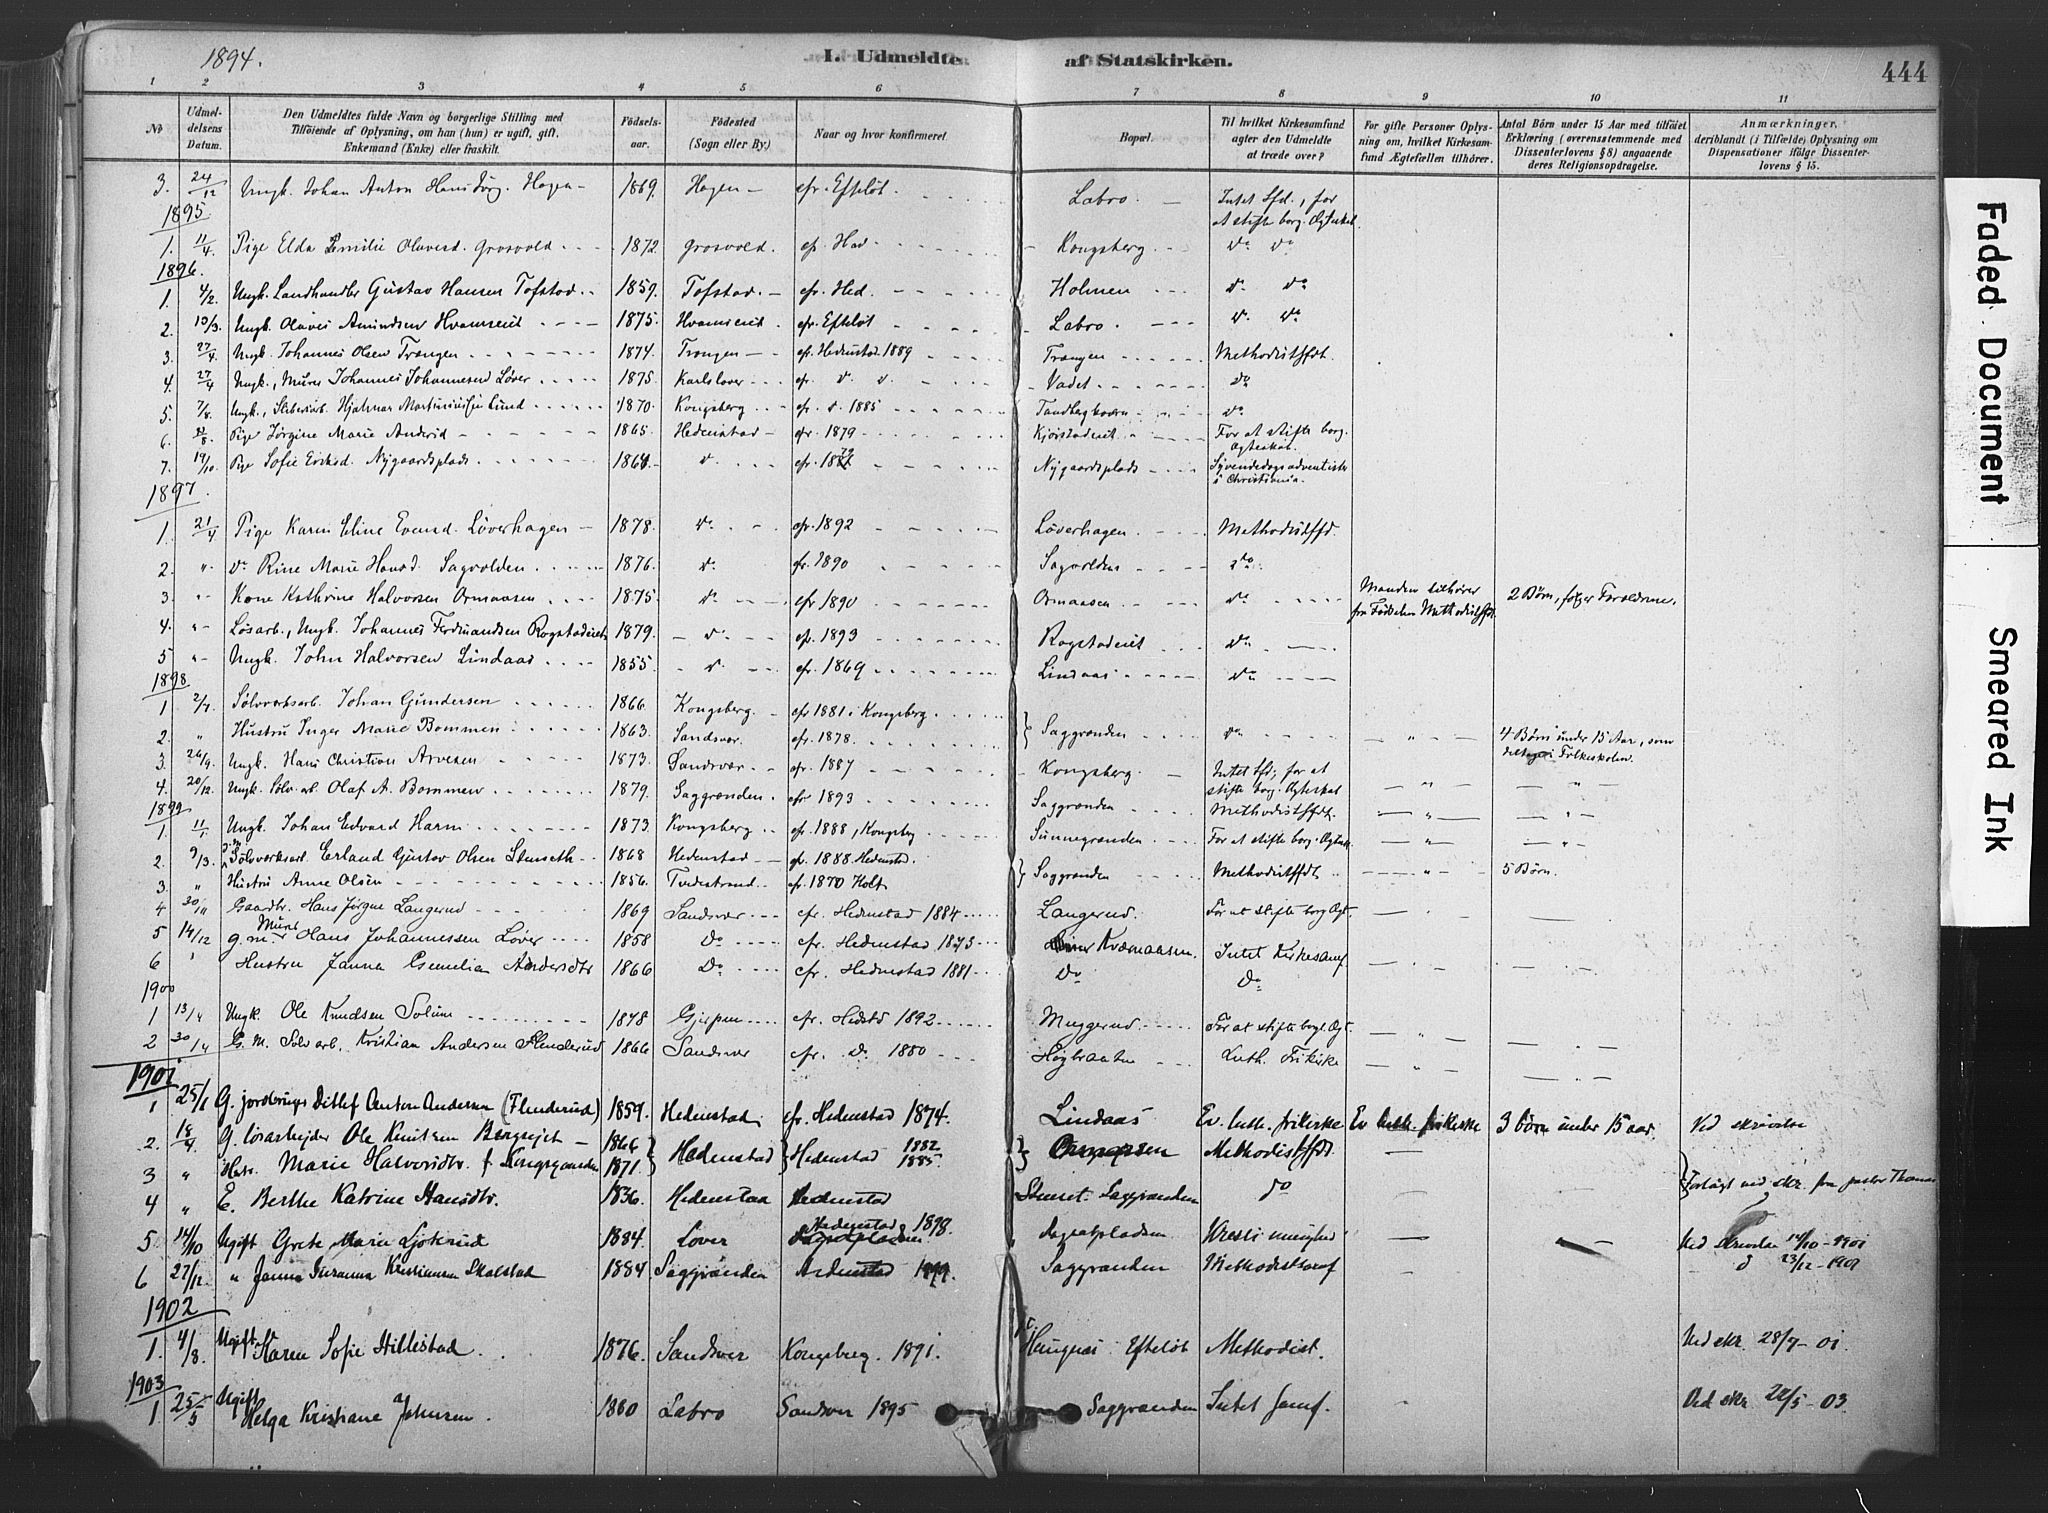 1894.
I. Udmeldte af Statskirken.
444
1 2 3 4 5 6 7 8 9 10 11
No
Udmeldelsens Datum.
Den Udmeldtes fulde Navn og borgerlige Stilling med Tilføiende af Oplysning, om han (hun) er ugift, gift, Enkemand (Enke) eller fraskilt.
Fødselsaar.
Fødested (Sogn eller By.)
Naar og hvor konfirmeret.
Bopæl.
Til hvilket Kirkesamfund agter den Udmeldte at træde over?
For gifte Personer Oplysning om, hvilket Kirkesamfund Ægtefællen tilhører.
Antal Børn under 15 Aar med tilføiet Erklæring (overensstemmende med Dissenterlovens § 8) angaaende deres Religionsopdragelse.
Anmærkninger, deriblandt (i Tilfælde) Oplysning om Dispensationer ifølge Dissenterlovens § 15.
3. 24/12 Ungk. Johan Anton Hans Jørg. Hagen 1869. Hagen cfr. Efteløt. Labro. Intet Sfd., for at stifte borg. Ægtesk.
1895
1. 11/4. Pige Elda Emilie Olavesd. Grosvold 1872. Grosvold. cfr. Hed. Kongsberg. do do
1896.
1. 4/2. Ungk. Landhandler Gustav Hansen Tofstad 1859. Tofstad. cfr. Hed. Holmen do do
2. 13/3. Ungk. Olaves Amundsen Hvamseiet 1875. Hvamseiet cfr. Efteløt Labro. do do
3. 27/4. Ungk. Johannes Olsen Trangen 1874. Trangen cfr. Hedenstad 1889 Trangen Methodistsfdt.
4. 27/4 Ungk., Murer Johannes Johannesend Løver 1875. Karlsløver cfr. d. d. Vadet do
5. 7/8. Ungk., Sliberiarb. Hjalmar Lund 1870. Kongsberg cfr. d. 1885 do
6. 11/8. Pige Jørgine Marie Andersd 1865. Hedenstad cfr. 1879 For at stifte borg. Ægteskab.
7. 19/10. Pige Sofie Eriksd. Nygaardsplads 1864 d. cfr. 1879 Nygaardsplads Syvendedagsadventister i Christiania.
1897
1. 21/4 Pige Karen Eline Evensd. Løverhagen 1878. do cfr. 1892 Løverhagen Methodistsfd.
2. " do Rine Marie Hansd. Sagvolden 1876. do cfr. 1890 Sagvolden do
3. " Kone Kathrine Halvorsen Ormaasen 1875. do cfr 1890 Ormaasen do Manden tilhører fra Fødselen Methodistsfdt. 2 Børn, følger Forældrene.
4. " Løsarb., Ungk. Johannes Ferdinandsen Rogstadeiet 1879. do cfr. 1893 Rogstadeiet do
5 " Ungk. John Halvorsen Lindaas 1855 d. cfr. 1869 Lindaas do
1898
1 2/7. Sølvverksarb. Johan Gundersen 1866. Kongsberg cfr 1881 i Kongsberg
2. " Hustru Inger Marie Bommen 1863. Sandsvær. cfr. 1878. Saggrænden do 4 Børn under 15 Aar, som deltager i Folkeskolen.
3. 26/9. Ungk. Hans Christian Arvesen 1873. Sandsvær cfr. 1887 Kongsberg. Intet Sfd; for at stifte borg. Ægteskab
4. 20/12. Ungk. Sølv.arb. Olaf A. Bommen 1879. Saggrænden. cfr 1893 Saggrænden Methodistsfdt.
1899
1. 11/1 Ungk. Johan Edvard Harm 1873. Kongsberg cfr. 1888, Kongsberg Sunnegrænden. For at stifte borg. Ægtesk.
2. 9/3. Sølvverksarb. Erland Gustav Olsen Stenseth 1868 Hedenstad cfr. 1888 Hedenstad.
3. " Hustru Anne Olsen 1856. Tvedestrand cfr. 1870 Holt Saggrænden Methodistsfdt. 5 Børn.
4 30/11 Gaardbr. Hans Jørgen Langerud 1869 Sandsvær cfr. Hedenstad 1884 Langerud. For at stifte borg Ægt.
5 14/12 g.m. Murer Hans Johannessen Løver 1858 do cfr. Hedenstad 1873 Kværnaasen. Intet Kirkesamf.
6 " Hustru Janna Andersdtr 1866 do cfr. Hedenstad 1881 do do
1900
1 13/4 Ungk. Ole Knudsen Solum 1878 Gjerpen cfr. Hedstd 1892 Muggerud For at stifte borgl. Ægt.
2 30/4 G. M. Sølv arb. Kristian Andersen Flenderud 1866 Sandsvær cfr. do 1880 Høgbraaten Luth. Frikirke
1901
1 25/1 G. Ditlef Anton Andersen (Flenderud) 1859. Hedenstad cfr. Hedenstad 1874. Lindaas Ev. luth. frikirke Ev. luth. frikirke 3 børn under 15 aar. Ved skrivelse
2. 18/4 G. løsarbejder Ole Knutsen Bergseiet 1866 Hedenstad Hedenstad 1882 Ormaasen Methodistsfdt.
3 " Hstr. Marie Halvorsdtr. f. 1871. 1885.
4 " E. Berthe Katrine Hansdtr. 1836. Hedenstad Hedenstad Saggrænden do Forlagt ved skr. fra pastor Thomas
5 14/10 Ugift Grete Marie Ljøterud 1884. Løver Hedenstad 1898. Ved skrivelse 14/10-1901
6 27/12. " Janna Susanna Kristiansen Skalstad 1884 Saggrænden Hedenstad 1899. Saggrænden Methodistsamf d 23/12-1901
1902
1. 4/8. Ugift Karen Sofie Hillestad 1876. Sandsvær Kongsberg. 1891. Efteløt Methodist. Ved skr. 28/7-01.
1903
1. 25/5 Ugift Helga Kristiane Johnsen. 1880 Labro Sandsvær 1895 Saggrænden Intet Samf. Ved skr 22/5-03
Faded Document
Smeared Ink